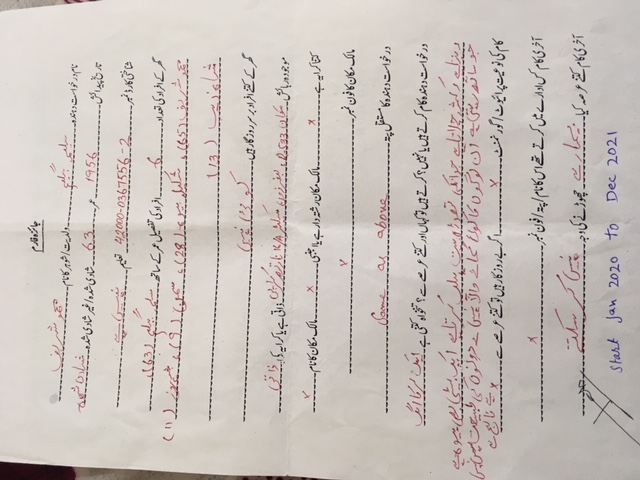 جائزہ فارم
نام درخواست دہندہ سلیمہ بیگم ولدیت / شوہر کا نام محمد شریف
تاریخ پیدائش 1956 عمر 63 شادی شدہ / غیر شادی شدہ شادی شدہ
شناختی کارڈ نمبر 42000-0367556-2 تعلیم نہیں ہے
گھر کے افراد کی تعداد 6 افراد کی تفصیل عمر کے ساتھ بیگم (63)
محمد شریف (65)، شکیل (28)، (9)، (11)
شاہ زیب (13)
گھر کے کتنے افراد برسر روزگار ہیں کوئی نہیں
موجودہ رہائش مکان D.533، ذاتی ہے یا کرایہ کا ذاتی
کتنا کرایہ ہے x مالک مکان رشتہ دار ہے یا اجنبی x مالک مکان کا نام
مالک مکان کا فون نمبر
درخواست دہندہ کا مستقل پتہ Same as above
درخواست دہندہ کام کرتے ہیں یا نہیں؟ کرتے ہیں تو کہاں اور کتنے عرصے سے؟ تنخواہ کتنی ہے ایک لڑکا
چلاتا ہے جو انکی ہے ایک بیٹی بھی
جو ساتھ رہتی ہے ان لوگوں کا کوئی کمانے والا نہیں ہے دونوں کی طبیعت
کام کی نوعیت پرائیوٹ / گورنمنٹ x اگر بے روزگار ہیں تو کتنے عرصے سے x
آخری کام کس ادارے میں کرتے تھے اس کا نام / پتہ / فون نمبر x
آخری کام کتنے عرصہ کیا بیمار ہے چھوڑنے کی وجہ نہیں کر سکتے
Start Jan 2020 to Dec 2021